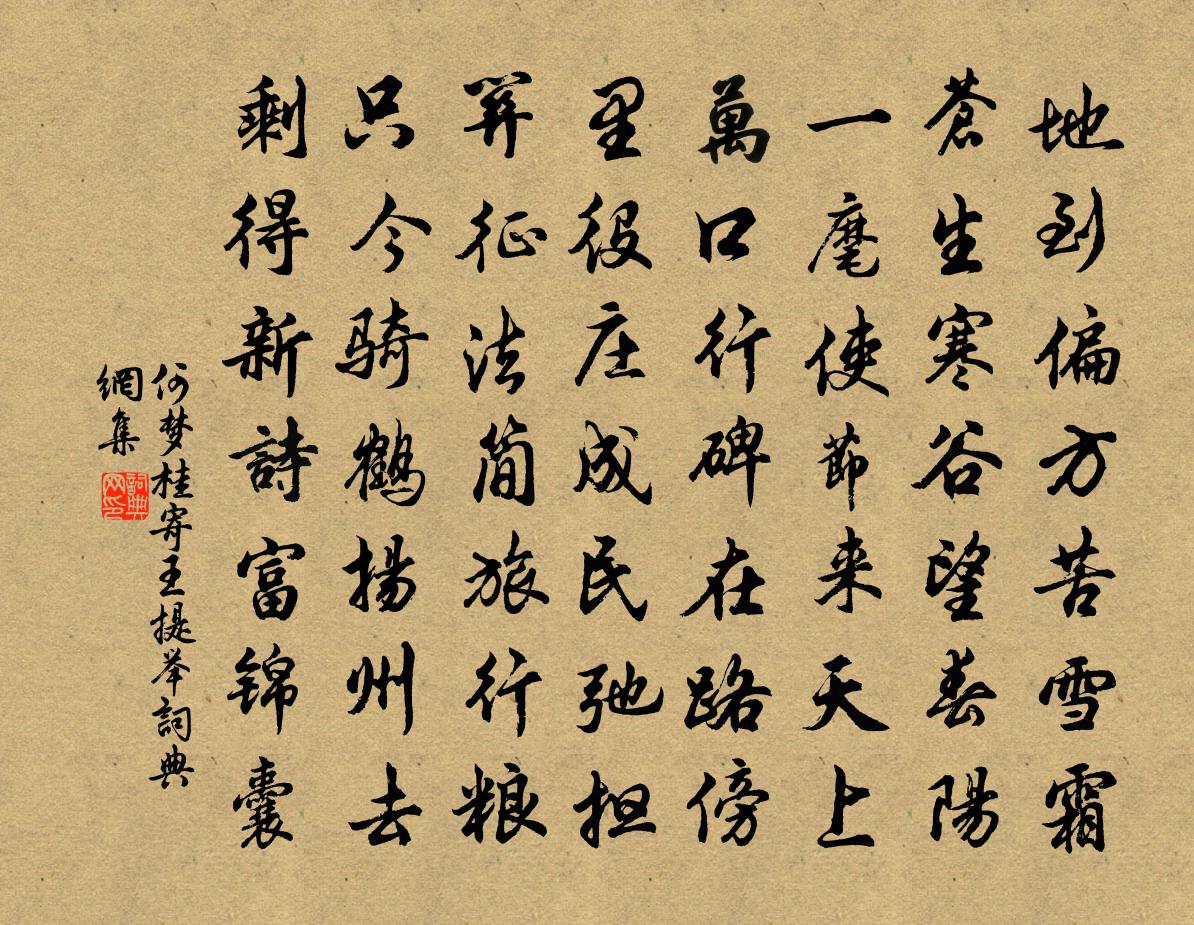 地到偏方苦雪霜
蒼生寒谷望春陽
一麾使節来天上
萬口行碑在路傍
里役庄成民弛担
筭征法简旅行粮
只今骑鹤揚州去
剩得新詩富锦囊
何梦桂寄王提举詞典
網集
詞典
网印